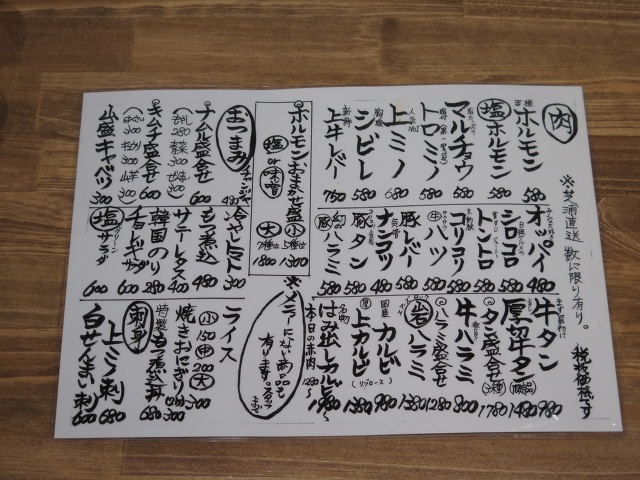 肉
※芝浦直送 数に限り有り。
税抜価格です
ホルモン 580
塩ホルモン 580
マルチョウ 580
トロミノ 580
上ミノ 680
人気No.1
シビレ 580
上牛レバー 750
オッパイ 480
シロコロ 580
トントロ 580
コリコリ 580
牛ハツ 580
豚レバー 580
ナンコツ 480
豚タン 580
豚ハラミ 580
牛タン 980
厚切牛タン 1480
タン盛合せ(3種) 1780
牛ハラミ 800
ハラミ盛合せ 1280
岩ハラミ 1380
国産カルビ 980
上カルビ(リブロース) 1380
名物はみ出しカルビ 1980
本日の赤肉 1280〜
ホルモンおまかせ盛
塩 or 味噌
小 5種 1300
大 7種 1800
※メニューにない商品も有ります。スタッフまで
おつまみ
チャンジャ 480
ナムル盛合せ 600
キムチ盛合せ 600
山盛キャベツ 300
冷やしトマト 300
もつ煮込 480
サニーレタス 400
韓国のり 280
チョレギサラダ 600
塩サラダ 600
ライス
小 150 中 200 大 300
焼きおにぎり 300
特製もつ煮込丼 680
刺身
上ミノ刺 680
白せんまい刺 600